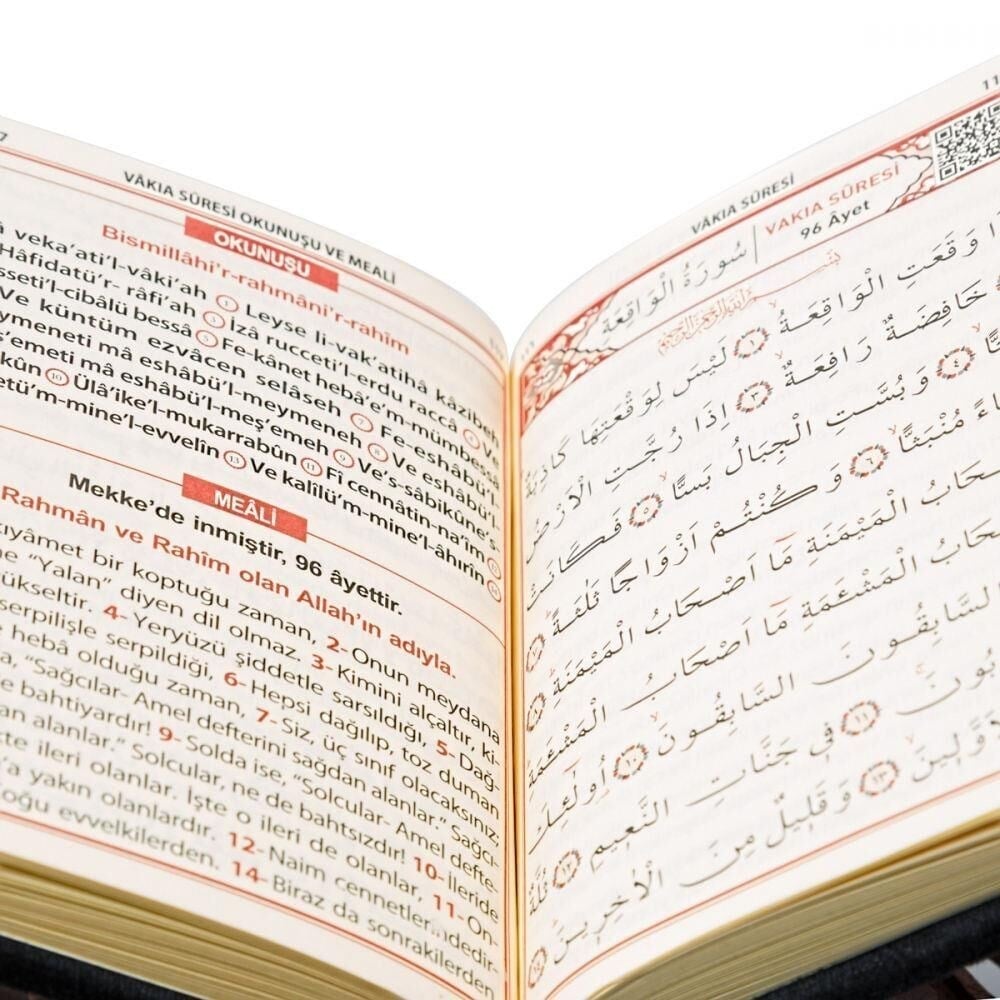 7
VÂKIA SÛRESİ OKUNUŞU VE MEALİ
OKUNUŞU
Bismillâhi'r-rahmâni'r-rahîm
veka'ati'l-vâki'ah ① Leyse li-vak'atihâ kâzibeh
Hâfidatü'r- râfi'ah ③ İzâ rucceti'l-erdu raccâ ④ Ve
sseti'l-cibâlü bessâ ⑤ Fe-kânet hebâ'e'm-mümbessâ
Ve küntüm ezvâcen selâseh ⑦ Fe-eshâbü'l-
ymeneti mâ eshâbü'l-meymeneh ⑧ Ve eshâbü'l-
ş'emeti mâ eshâbü'l-meş'emeh ⑨ Ve's-sâbikûne's-
kûn ⑩ Ülâ'ike'l-mukarrabûn ⑪ Fî cennâtin-na'îm ⑫
etü'm-mine'l-evvelîn ⑬ Ve kalîlü'm-mine'l-âhırîn ⑭
MEÂLİ
Mekke'de inmiştir, 96 âyettir.
Rahmân ve Rahîm olan Allah'ın adıyla.
kıyâmet bir koptuğu zaman, 2- Onun meydana
ne "Yalan" diyen dil olmaz. 3- Kimini alçaltır, ki-
yükseltir. 4- Yeryüzü şiddetle sarsıldığı, 5- Dağ-
serpilişle serpildiği, 6- Hepsi dağılıp, toz duman
hebâ olduğu zaman, 7- Siz, üç sınıf olacaksınız;
a, "Sağcılar- Amel defterini sağdan alanlar." Sağcı-
e bahtiyardır! 9- Solda ise, "Solcular- Amel defte-
an alanlar." Solcular, ne de bahtsızdır! 10- İleride
te ileri olanlar. İşte o ileri de olanlar, 11- On-
'a yakın olanlardır. 12- Naim cennetlerindedir-
Çoğu evvelkilerden. 14- Biraz da sonrakilerden
11
VÂKIA SÛRESİ
سُورَةُ الْوَاقِعَةِ
VAKIA SÛRESİ
96 Âyet
بِسْمِ اللّٰهِ الرَّحْمٰنِ الرَّحِيمِ
ا وَقَعَتِ الْوَاقِعَةُ ﴿١﴾ لَيْسَ لِوَقْعَتِهَا كَاذِبَةٌ
خَافِضَةٌ رَافِعَةٌ ﴿٣﴾ اِذَا رُجَّتِ الْاَرْضُ
﴿٤﴾ وَبُسَّتِ الْجِبَالُ بَسًّا ﴿٥﴾ فَكَانَتْ
اءً مُنْبَثًّا ﴿٦﴾ وَكُنْتُمْ اَزْوَاجًا ثَلٰثَةً ﴿٧﴾
حَابُ الْمَيْمَنَةِ مَٓا اَصْحَابُ الْمَيْمَنَةِ ﴿٨﴾
حَابُ الْمَشْـَٔمَةِ مَٓا اَصْحَابُ الْمَشْـَٔمَةِ
السَّابِقُونَ السَّابِقُونَ ﴿١٠﴾ اُولٰٓئِكَ
بُونَ ﴿١١﴾ فِي جَنَّاتِ النَّعِيمِ ﴿١٢﴾ ثُلَّةٌ
وَّلِينَ ﴿١٣﴾ وَقَلِيلٌ مِنَ الْاٰخِرِينَ ﴿١٤﴾